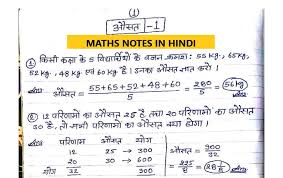 (1)
औसत - 1
MATHS NOTES IN HINDI
① किसी कक्षा के 5 विद्यार्थियों के वजन क्रमशः 55 kg, 65kg,
52kg, 48 kg एवं 60kg है। उनका औसत ज्ञात करो।
औसत = 55+65+52+48+60 / 5 = 280 / 5 = 56kg
② 12 परिणामों का औसत 25 है, तथा 20 परिणामों का औसत
30 है, तो सभी परिणामों का औसत क्या होगा।
परिणाम औसत योग
12 25 → 300
20 30 → 600
योग 32 900
औसत = 900 / 32
= 225 / 8 = 28 1/8